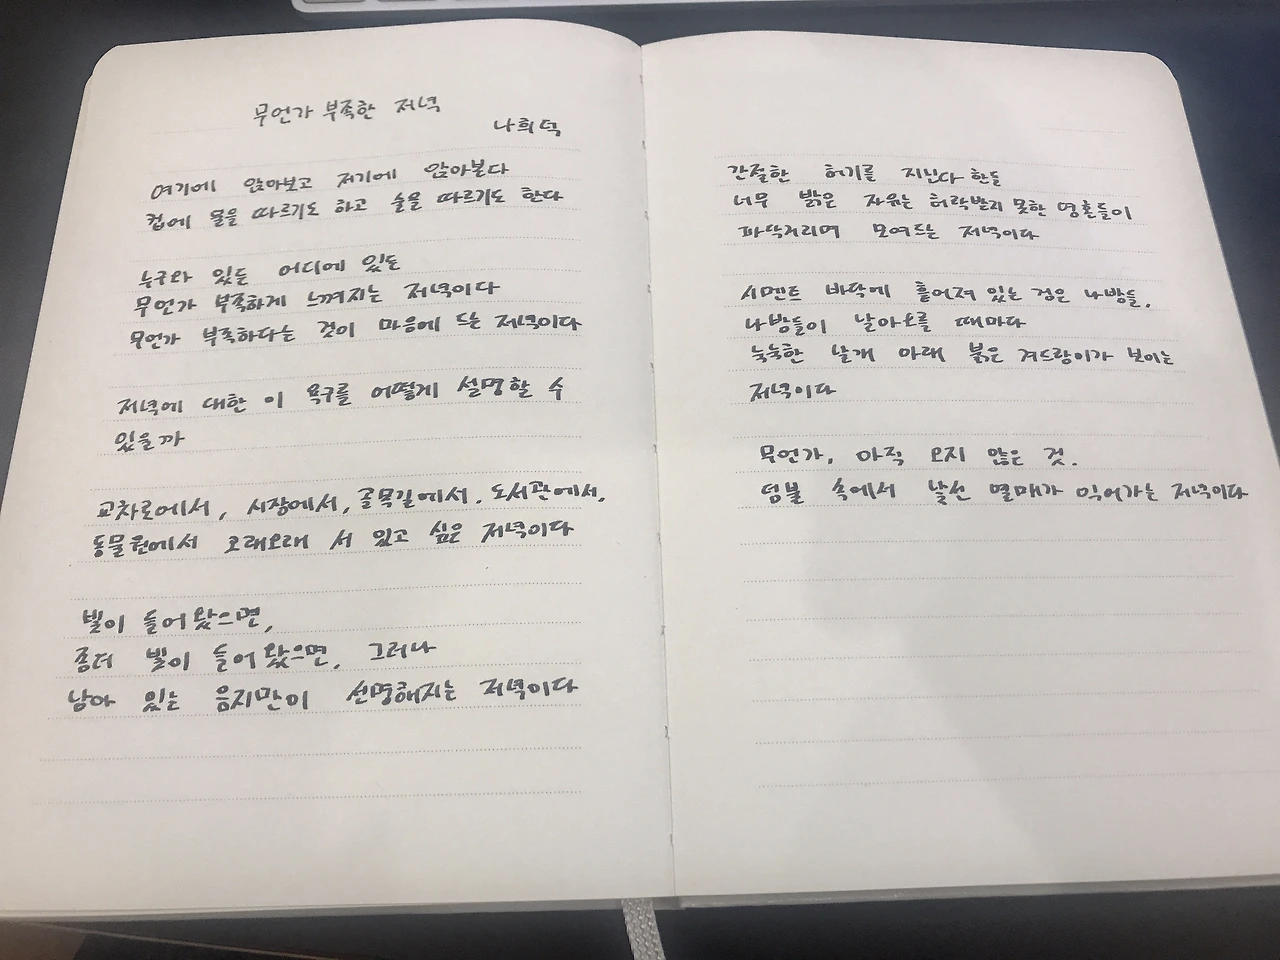 무언가 부족한 저녁
나희덕
여기에 앉아보고 저기에 앉아본다
컵에 물을 따르기도 하고 술을 따르기도 한다
누구와 있든 어디에 있든
무언가 부족하게 느껴지는 저녁이다
무언가 부족하다는 것이 마음에 드는 저녁이다
저녁에 대한 이 욕구를 어떻게 설명할 수
있을까
교차로에서, 시장에서, 골목길에서, 도서관에서,
동물원에서 오래오래 서 있고 싶은 저녁이다
빛이 들어왔으면,
좀더 빛이 들어왔으면, 그러나
남아 있는 음지만이 선명해지는 저녁이다
간절한 허기를 지닌다 한들
너무 밝은 자유는 허락받지 못한 영혼들이
파닥거리며 모여드는 저녁이다
시멘트 바닥에 흩어져 있는 검은 나방들,
나방들이 날아오를 때마다
눅눅한 날개 아래 붉은 겨드랑이가 보이는
저녁이다
무언가, 아직 오지 않은 것.
덤불 속에서 낯선 열매가 익어가는 저녁이다